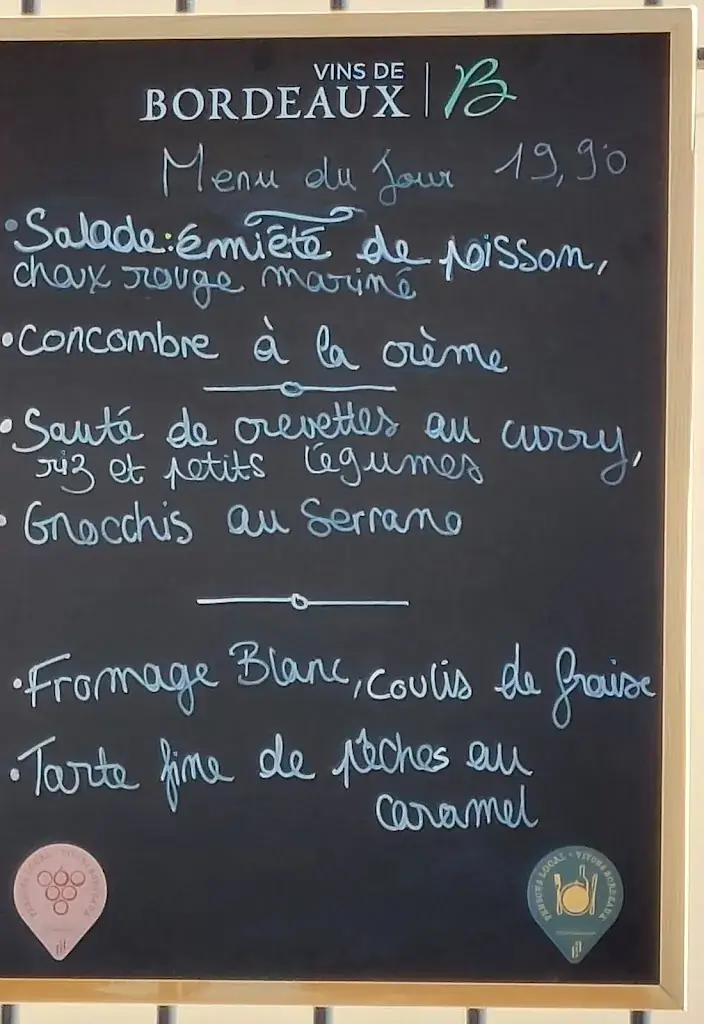 VINS DE
BORDEAUX | B
Menu du Jour 19,90
• Salade: émiété de poisson,
choux rouge mariné
• Concombre à la crème
• Sauté de crevettes au curry,
riz et petits légumes
• Gnocchis au Serrano
• Fromage Blanc, coulis de fraise
• Tarte fine de pêches au
caramel
PENSONS LOCAL • VIVONS BORDEAUX